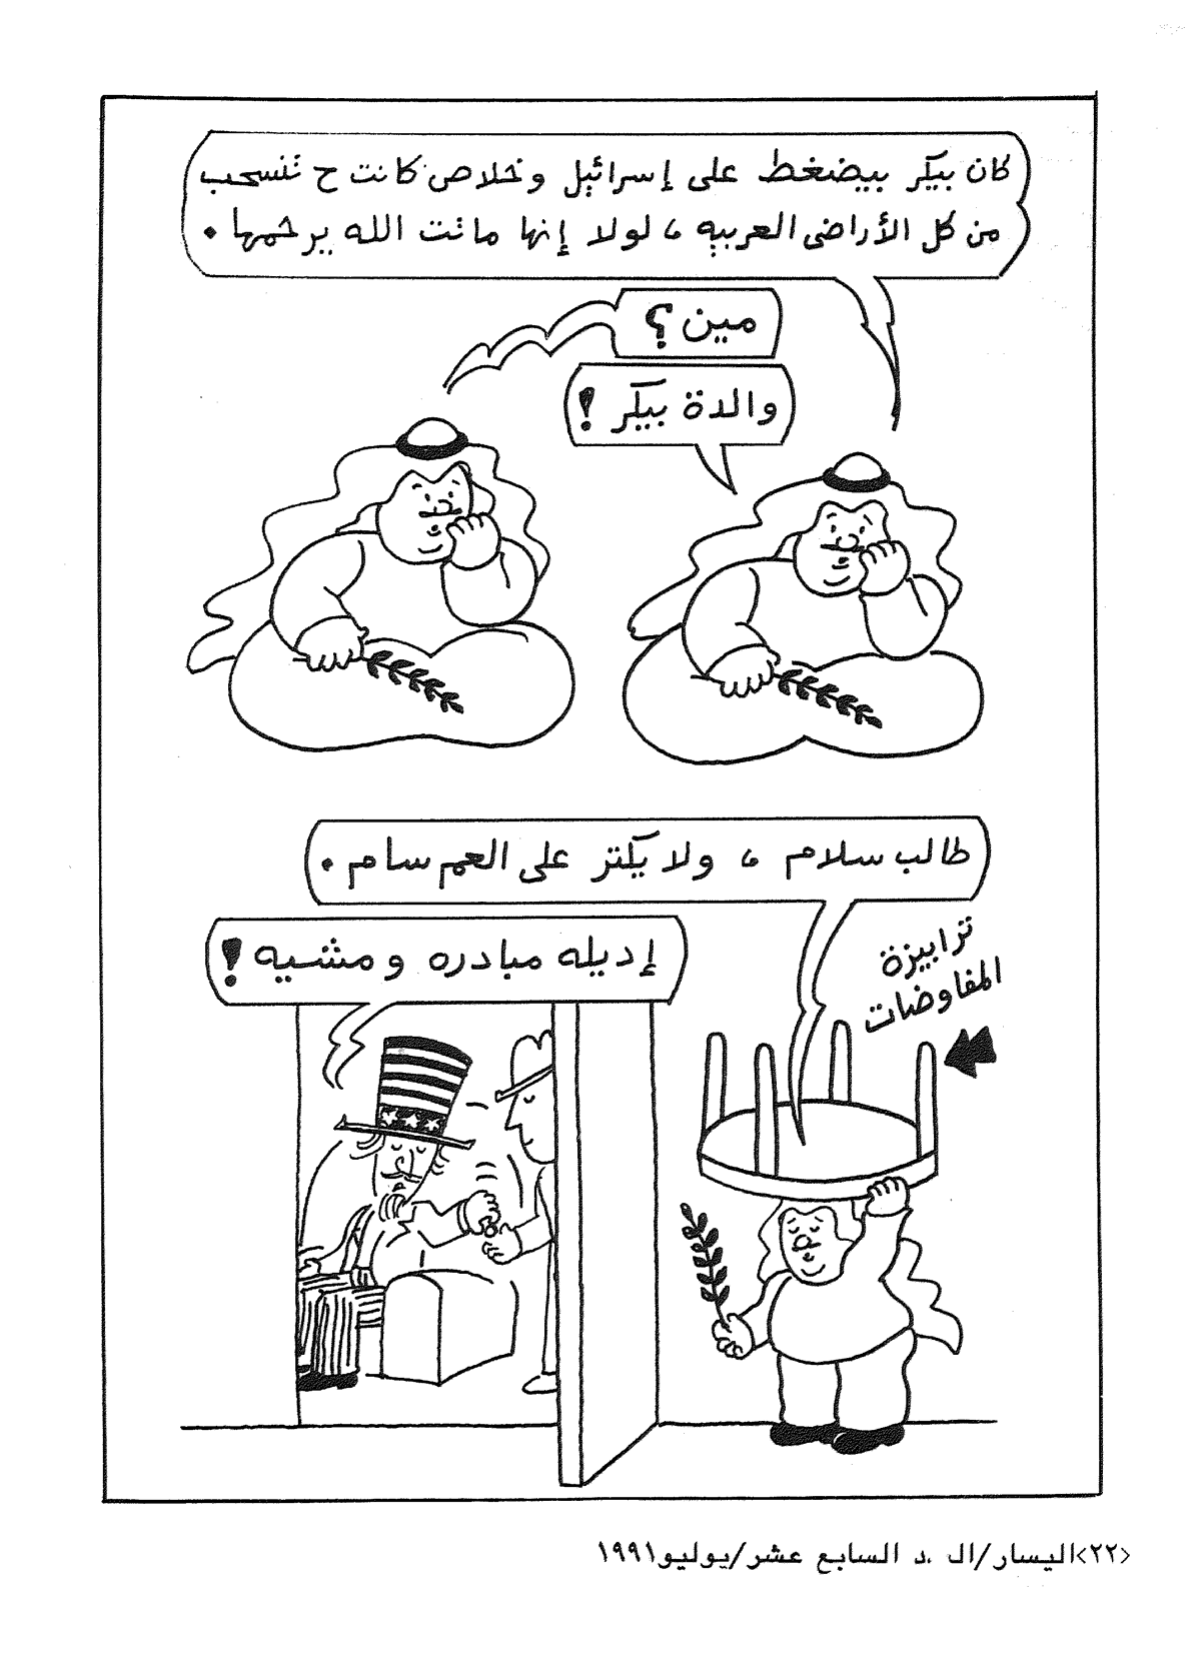 كان بيكر بيضغط على إسرائيل وخلاص كانت ح تنسحب
من كل الأراضى العربيه، لولا إنها ماتت الله يرحمها.
مين؟
والدة بيكر!
طالب سلام، ولا يكتر على العم سام.
إديله مبادره ومشيه!
ترابيزة
المفاوضات
<٢٢>اليسار/ال د السابع عشر/يوليو١٩٩١